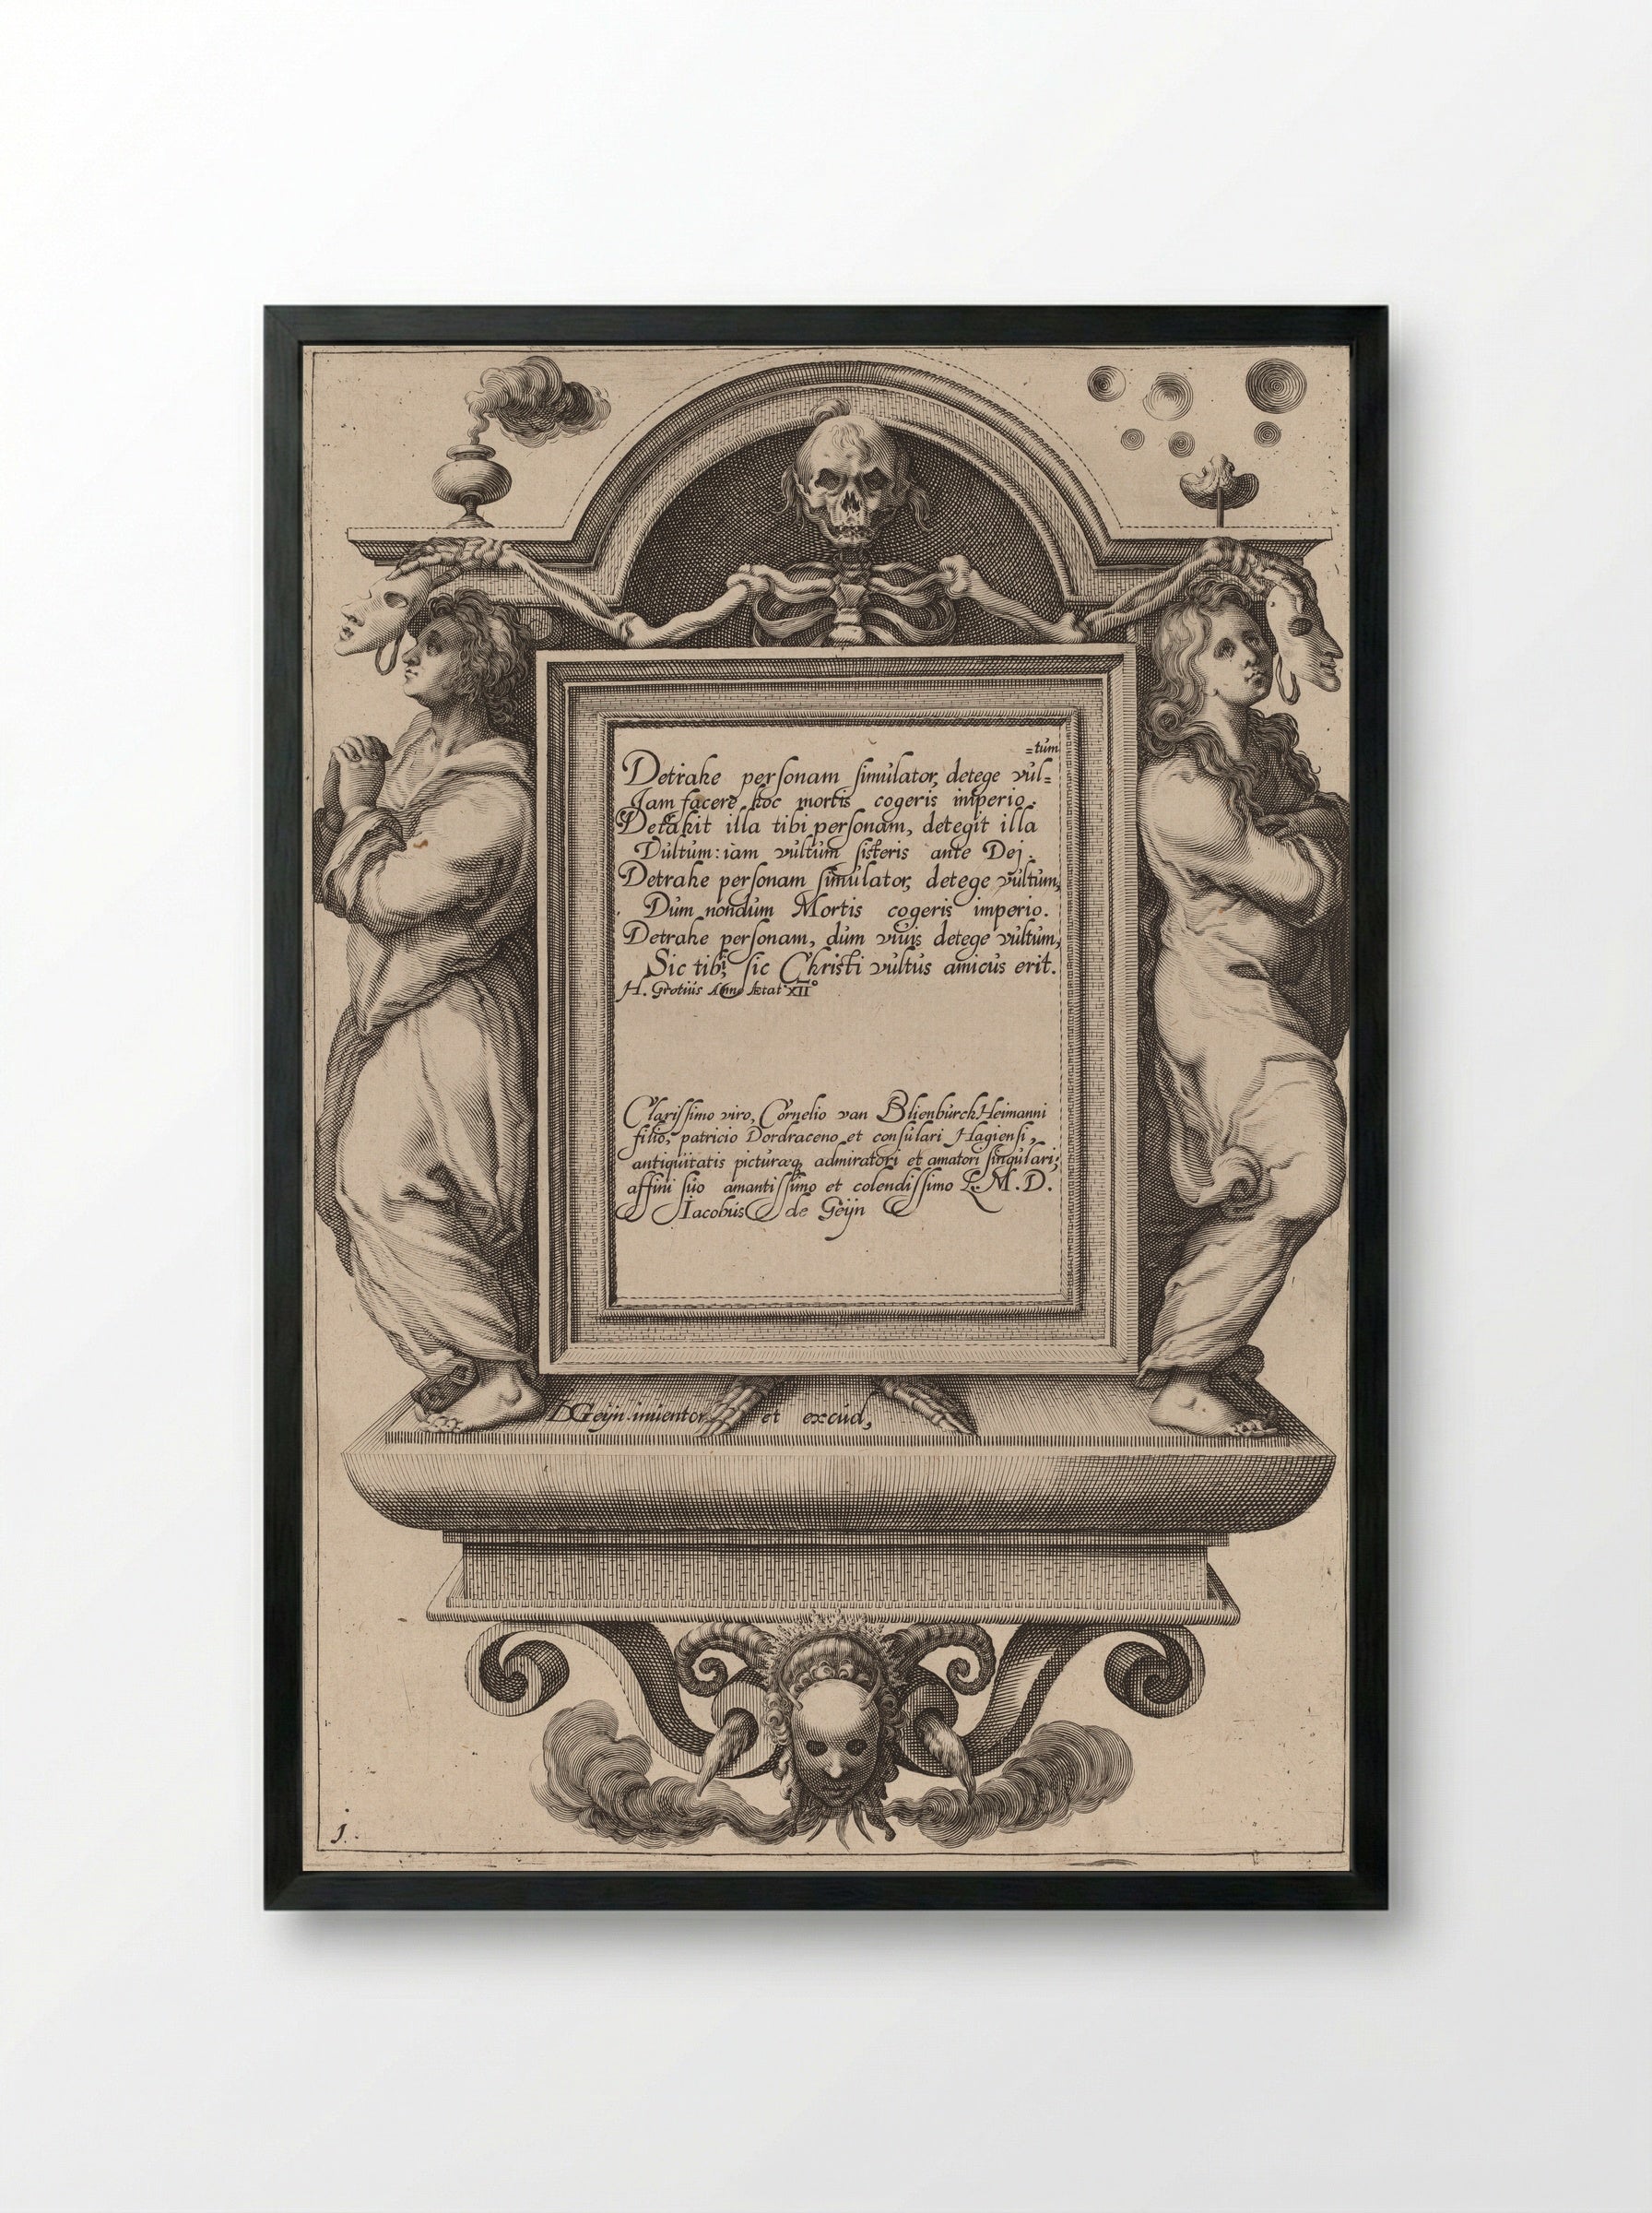 =tum
Detrahe personam simulator, detege vul=
Jam facere hoc mortis cogeris imperio.
Detrahit illa tibi personam, detegit illa
Vultum: iam vultum sisteris ante Dei.
Detrahe personam simulator, detege vultum,
Dum nondum Mortis cogeris imperio.
Detrahe personam, dum viuis detege vultum,
Sic tibi, sic Christi vultus amicus erit.
H. Grotius Anno Ætat XII°
Clarissimo viro, Cornelio van Blienburch Heimanni
filio, patricio Dordraceno et consulari Hagiensi,
antiquitatis picturæq, admiratori et amatori singulari;
affini suo amantissimo et colendissimo L.M.D.
Iacobus de Geijn
DGeijn.inuentor et excud,
1.